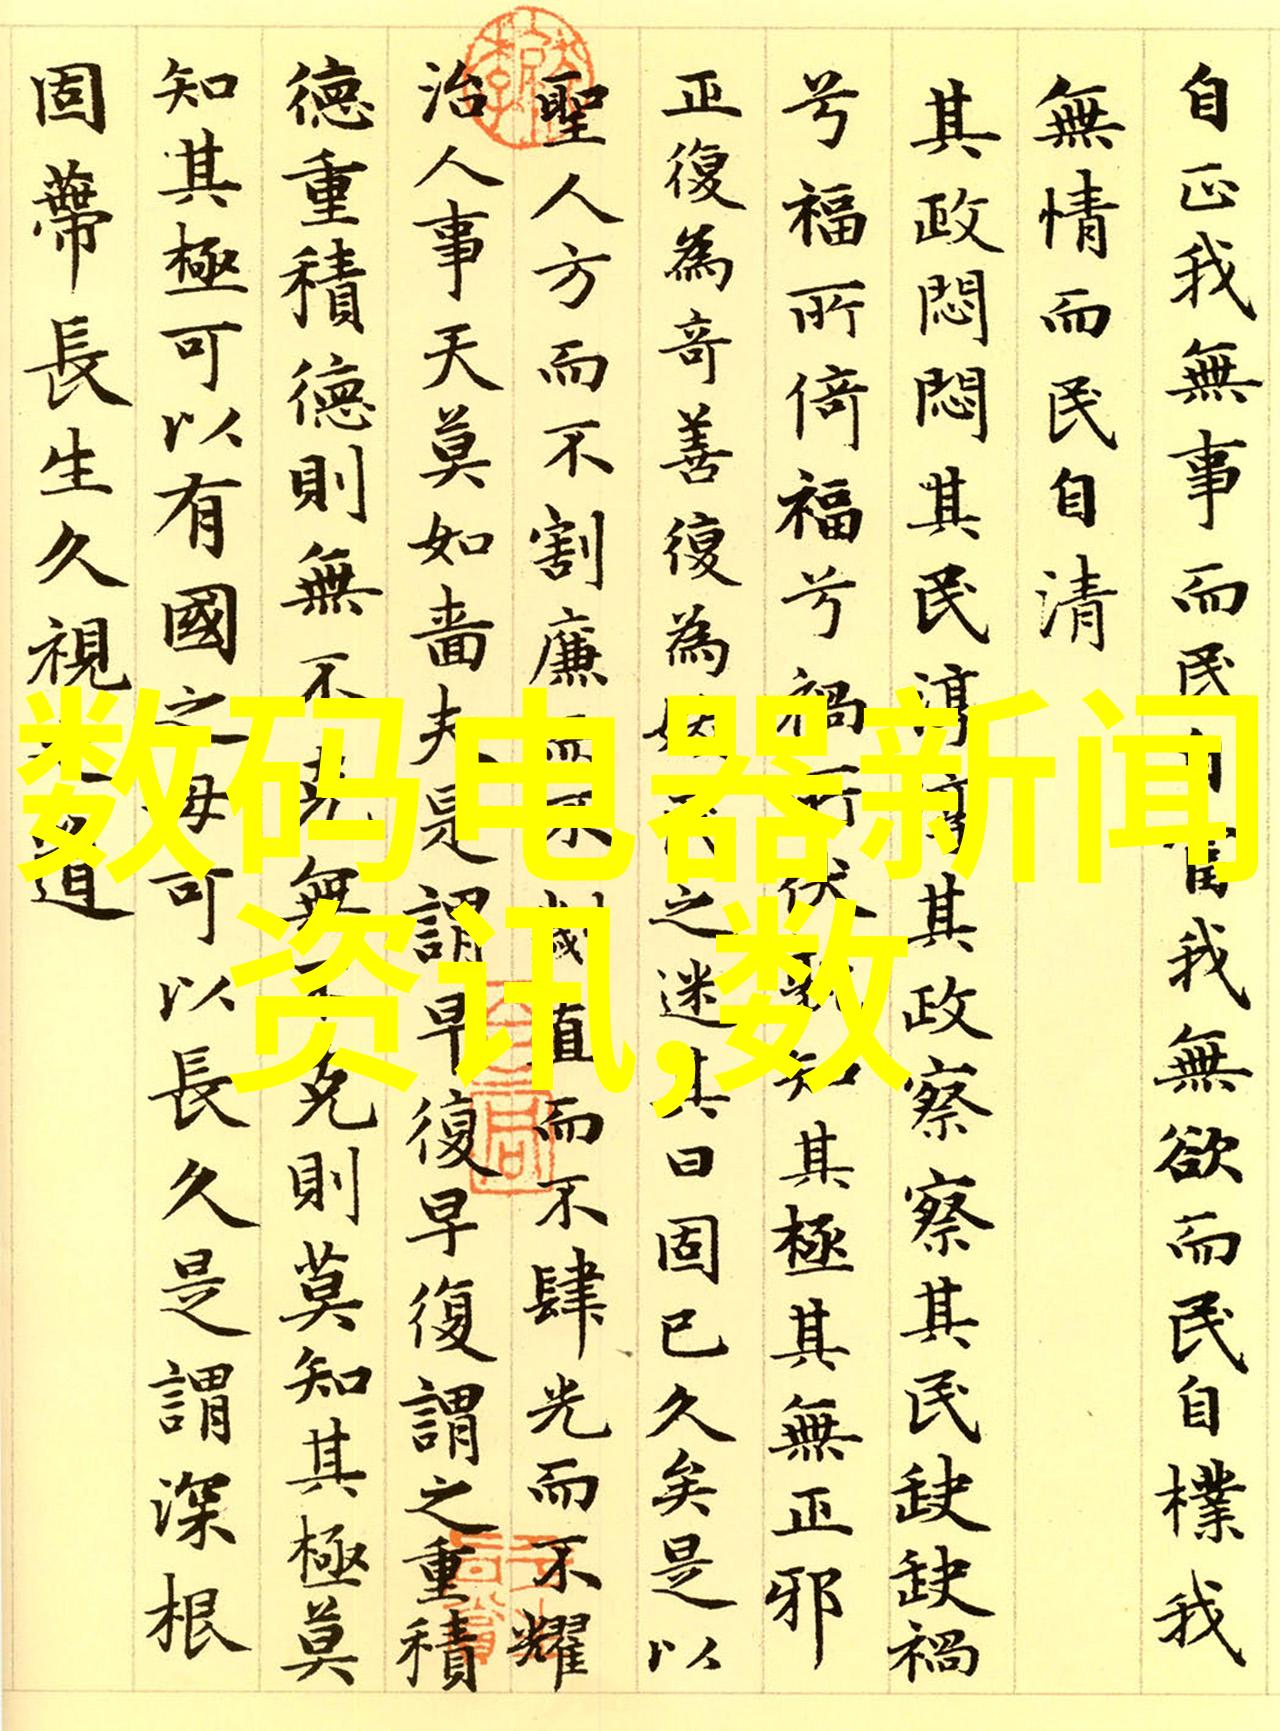 自正我無事而民自富我無欲而民自樸我
無情而民自清
其政悶悶其民淳淳其政察察其民缺缺禍
兮福所倚福兮禍所伏孰知其極其無正邪
正復為奇善復為之迷其日固已久矣是以
聖人方而不割廉而不劌直而不肆光而不耀
治人事天莫如嗇夫是謂早復早復謂之重積
德重積德則無不克無不克則莫知其極莫
知其極可以有國之母可以長久是謂深根
固蔕長生久視之道
数码电器新闻
资讯,数